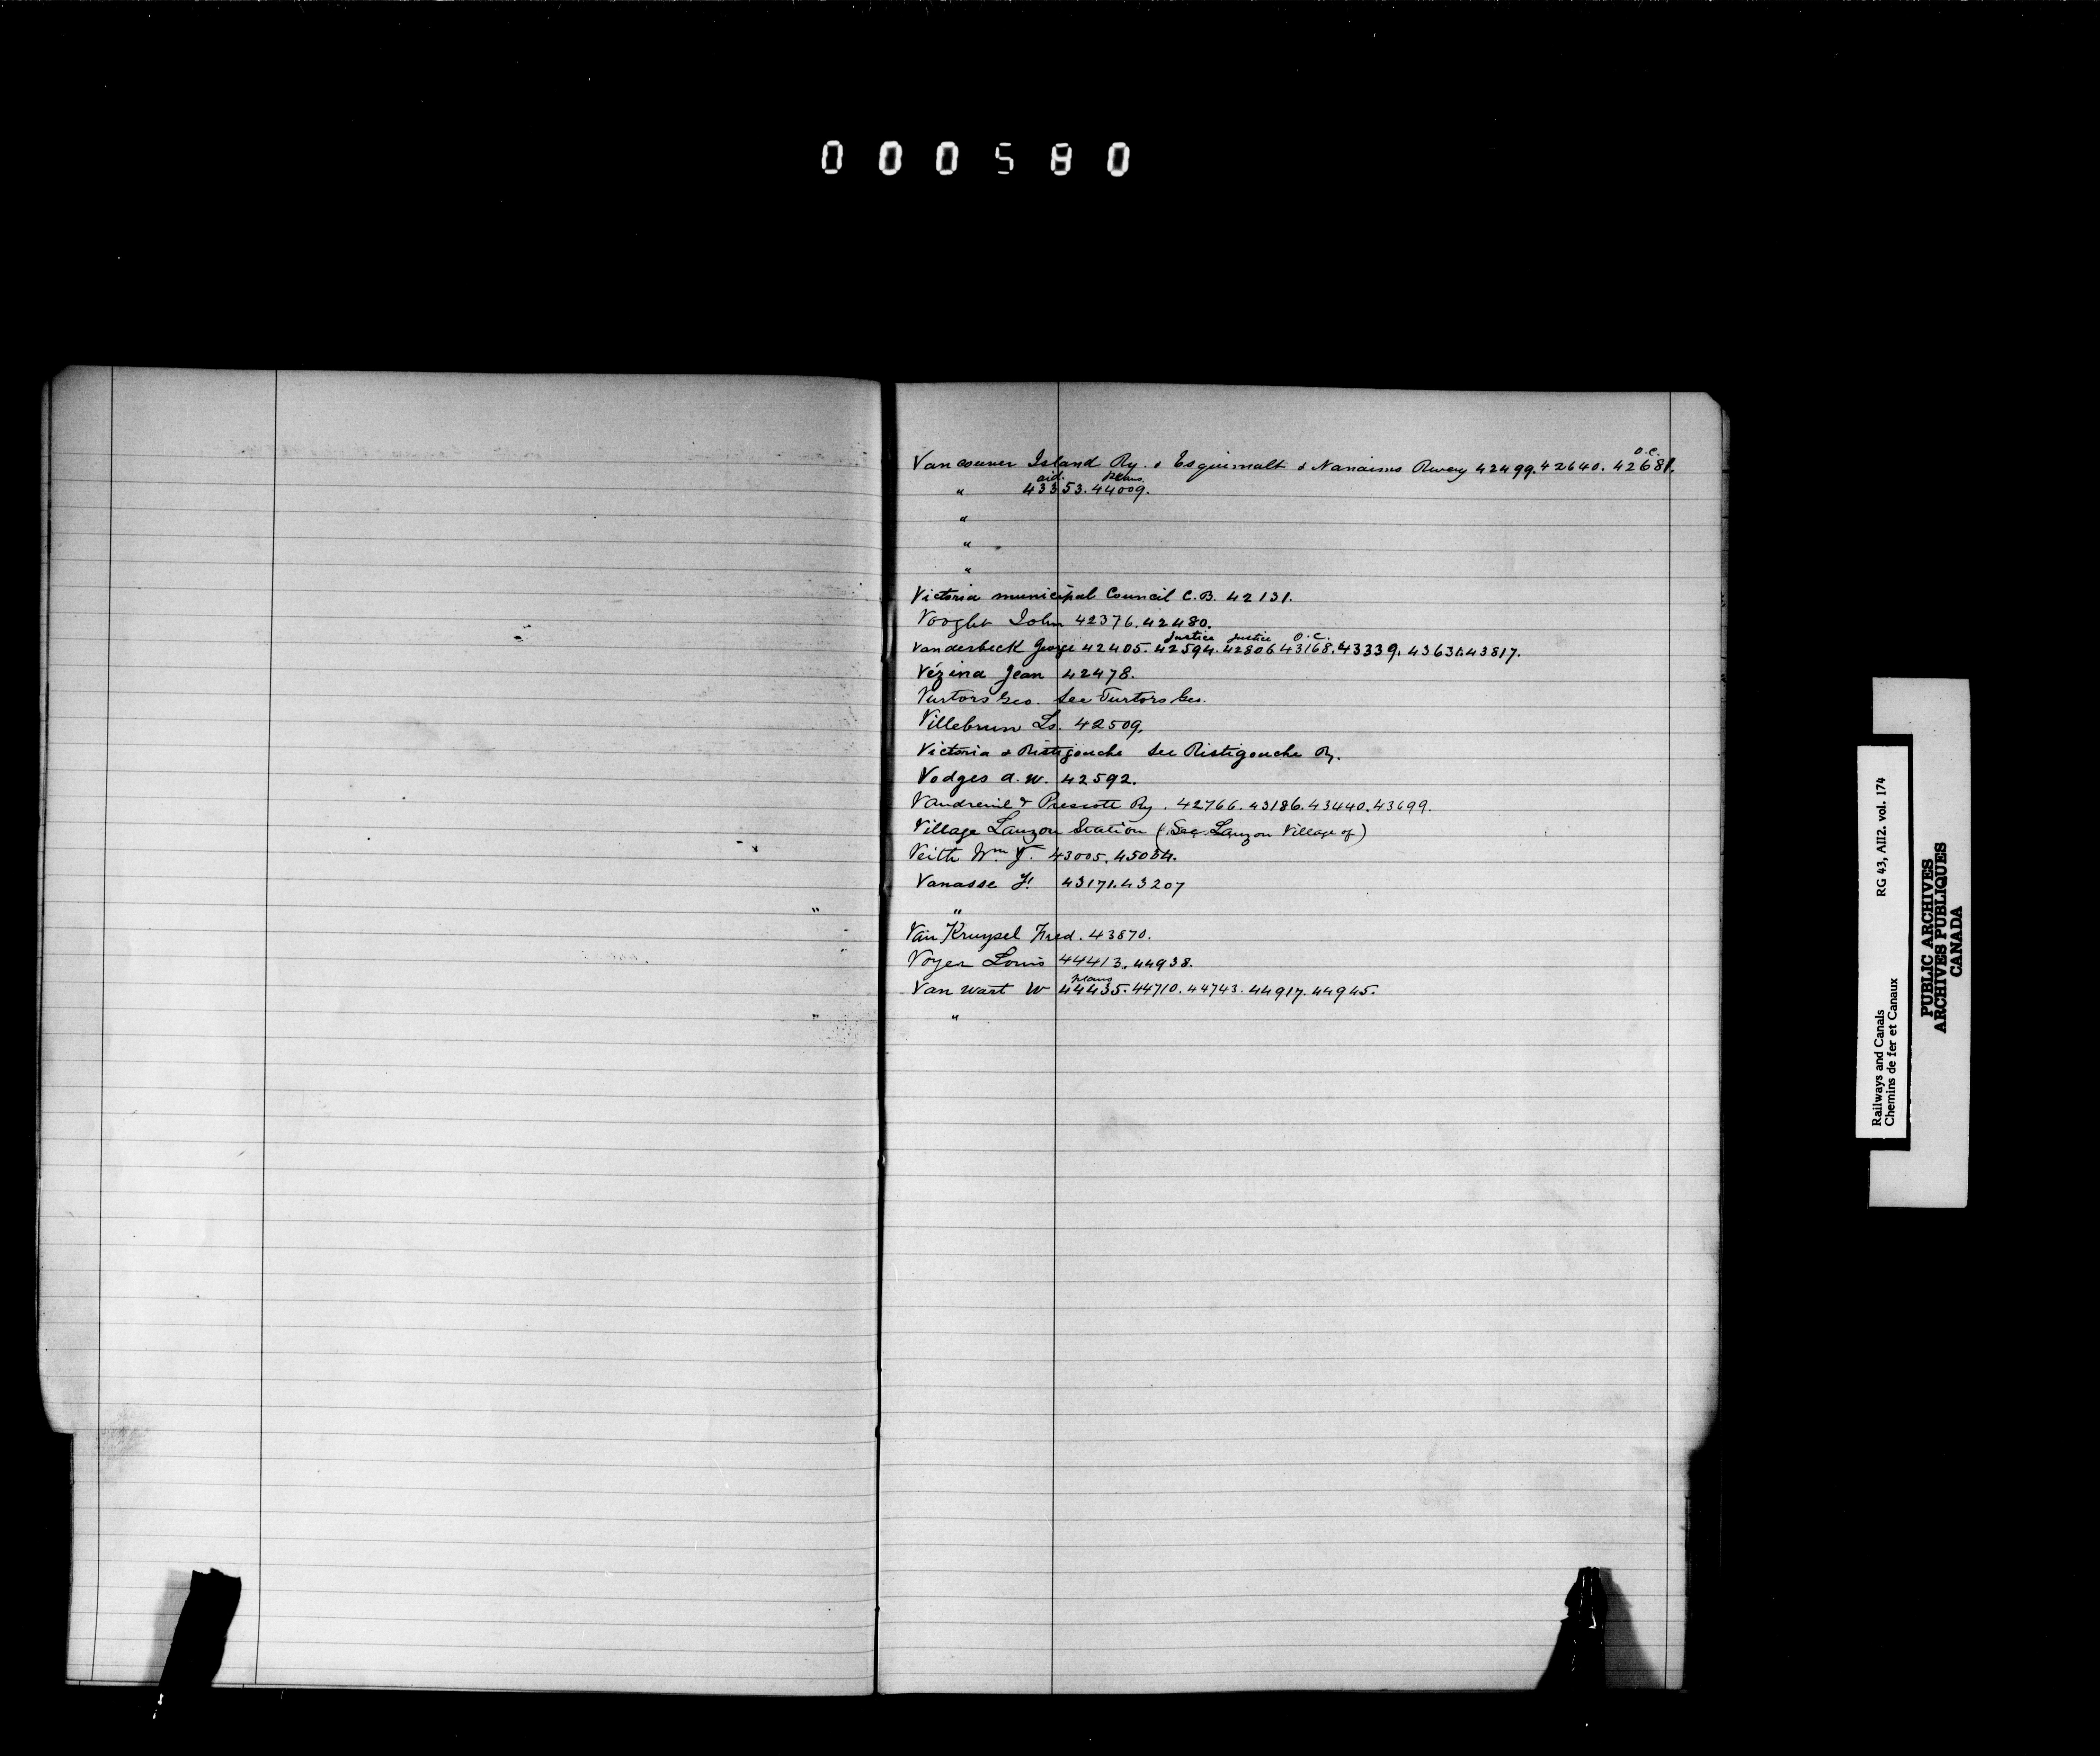 000580
O.C.
Vancouver Island Ry. & Esquimalt & Nanaimo Rwery 42499. 42640. 42681.
aid. Plans.
" 43353. 44009.
"
"
"
Victoria municipal Council C.B. 42131.
Vooght John 42376. 42480.
Justice Justice O.C.
Vanderbeck George 42405. 42594. 42806 43168. 43339. 43631. 43817.
Vézina Jean 42478.
Vurtors Geo. See Turtors Geo.
Villebrun Ls. 42509.
Victoria & Ristigouche See Ristigouche Ry.
Vodges A. W. 42592.
Vaudreuil & Prescott Ry. 42766. 43186. 43440. 43699.
Village Lauzon Station (See Lauzon Village of)
Veith Wm 43005. 45084.
Vanasse F. 43171. 43207
" "
Van Kruysel Fred. 43870.
Voyer Louis 44413. 44938.
Plans
Van Wart W 44435. 44710. 44743. 44917. 44945.
" "
Railways and Canals RG 43, AII2. vol. 174
Chemins de fer et Canaux
PUBLIC ARCHIVES
ARCHIVES PUBLIQUES
CANADA